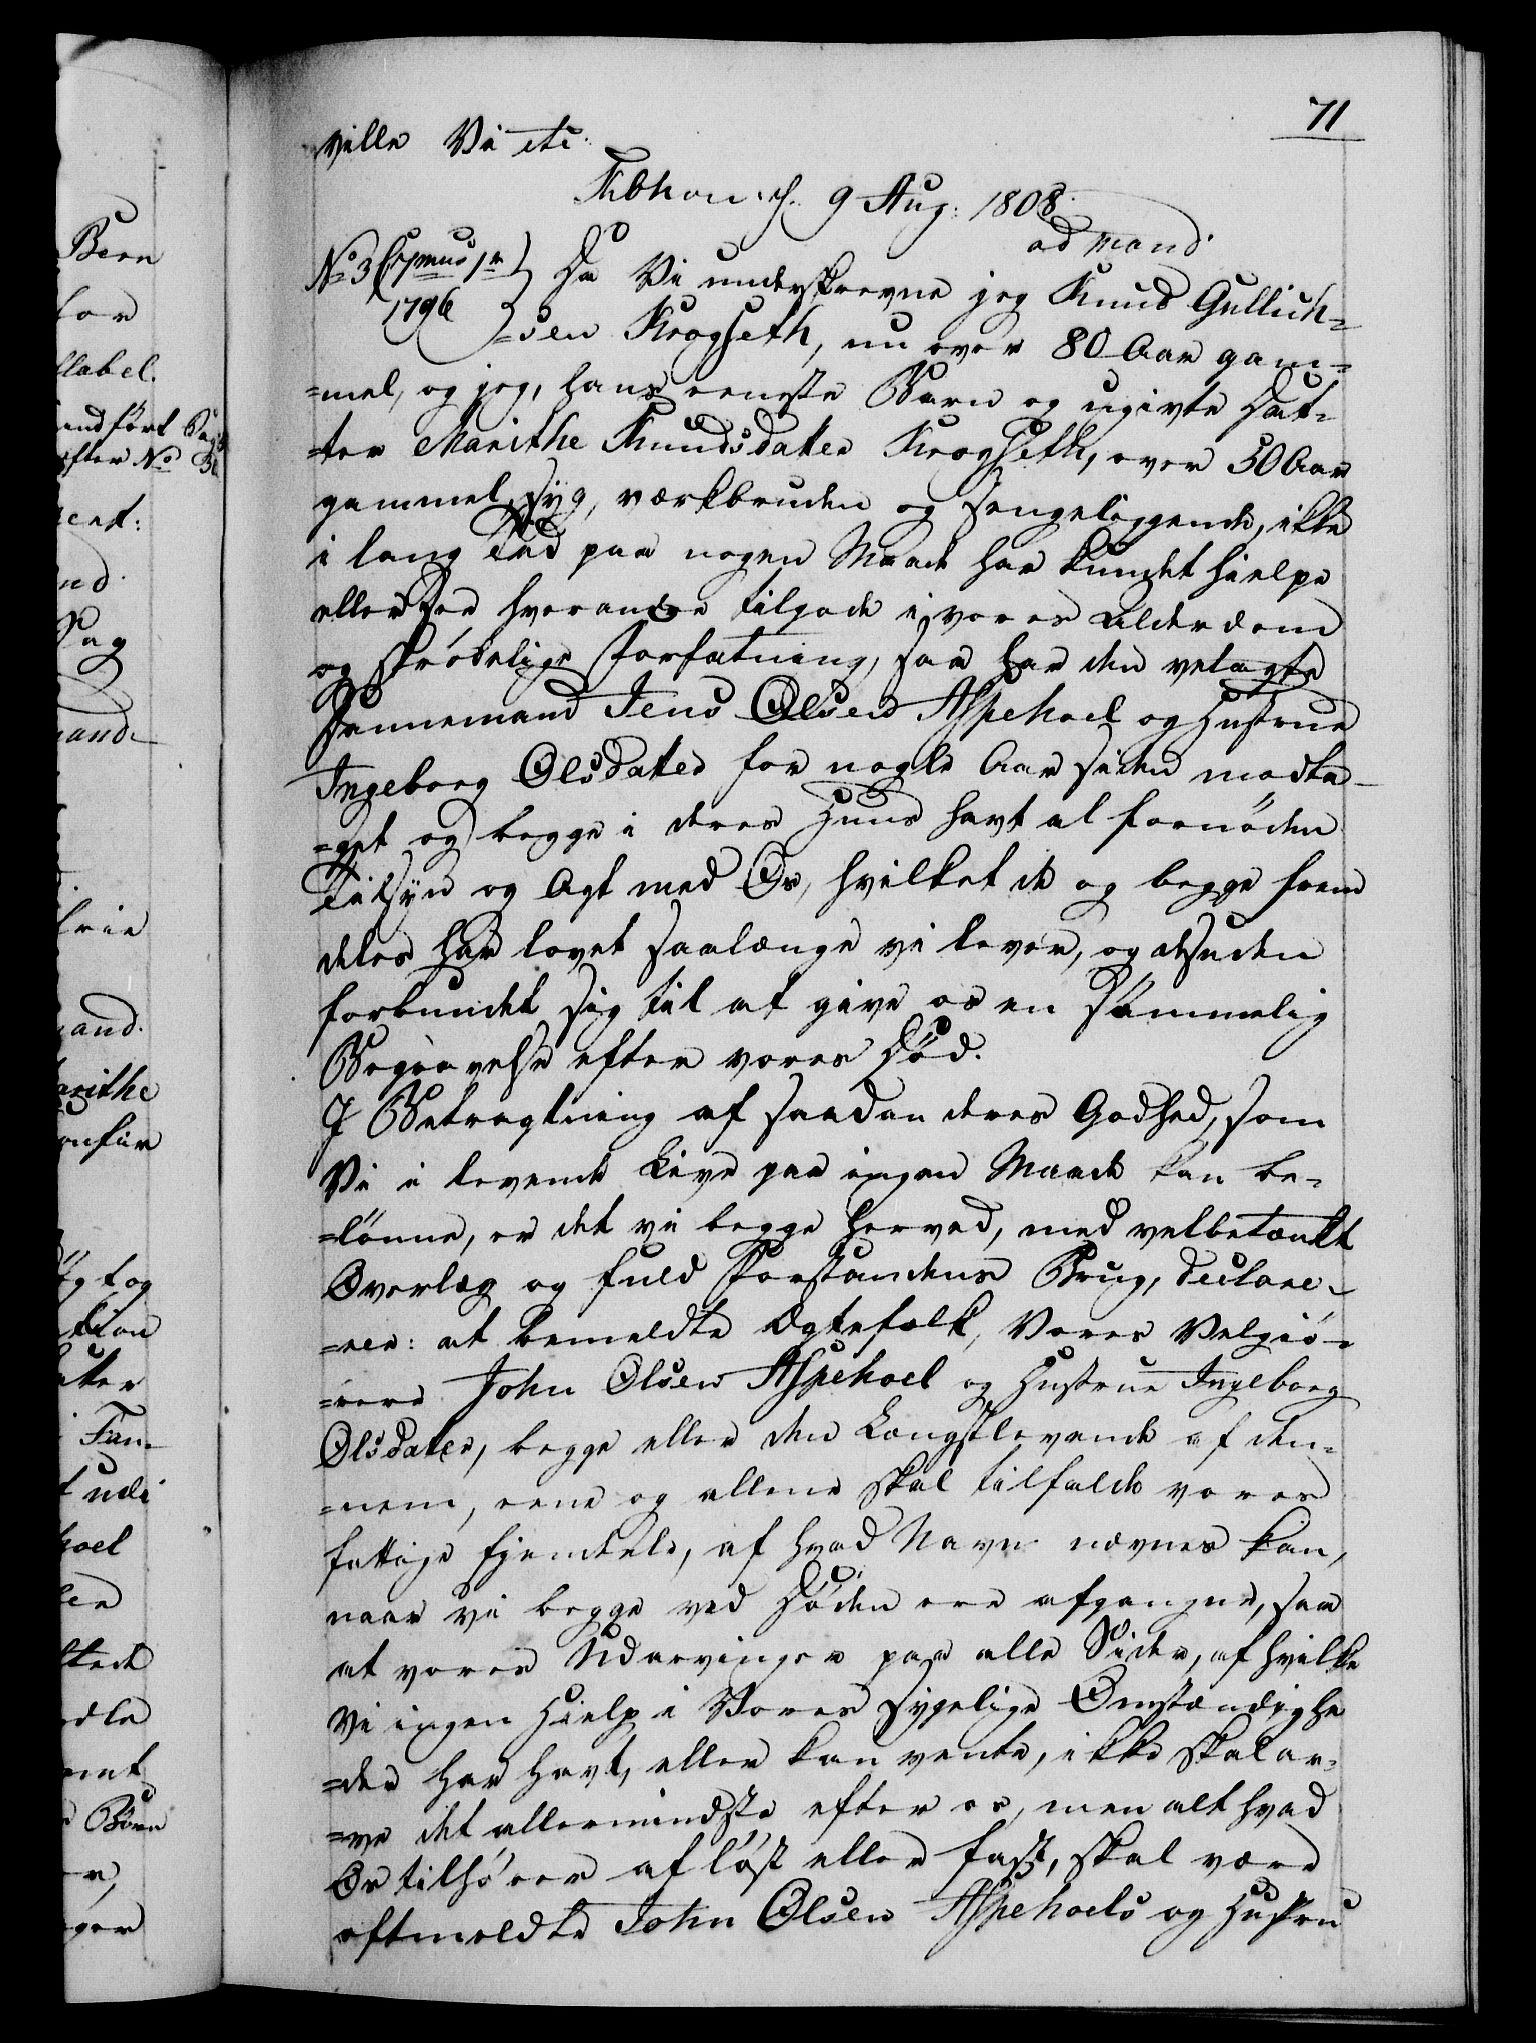 71
ville Vi etc:
Kbhavn. d. 9 Aug: 1808.
ad mand.
No 3 1796 Da Vi underskrevne jeg Knud Gullich-
=sen Krogseth, nu over 80 Aar gam-
=mel, og jeg, hans eeneste Barn og ugivte Dat-
=ter Marithe Knudsdatter Krogseth, over 50 Aar
gammel, syg, værkbruden og sengeliggende, ikke
i lang Tid paa nogen Maade har kundet hielpe
eller see hverandre tilgode i vores Alderdom
og skrøbelige Forfatning, saa har den velagte
Dannemand Jens Olsen Aspehoel og Hustrue
Ingeborg Olsdatter for nogle Aar siden modta-
=get og begge i deres Huus havt al fornøden
Tilsyn og Agt med Os, hvilket de og begge frem
deles har lovet saalænge vi lever, og desuden
forbundet sig til at give os en sømmelig
Begravelse efter vores Død.
I Betragtning af saadan deres Godhed, som
Vi i levende Live paa ingen Maade kan be-
=lønne, er det vi begge herved, med velbetænkt
Overlæg og fuld Forstandens Brug, declare-
=rer: at bemeldte Ægtefolk, Vores Velgiø-
=rere John Olsen Aspehoel og Hustrue Ingeborg
Olsdatter, begge eller den Længstlevende af den-
=nem, eene og allene skal tilfalde vores
fattige Ejendele, af hvad Navn nævnes kan,
naar vi begge ved Døden ere afgangne, saa
at vores Udarvinger paa alle Sider, af hvilke
Vi ingen Hielp i Vores sygelige Omstændighe
=der har havt, eller kan vente, ikke skal ar-
=ve det allermindste efter os, men alt hvad
Os tilhører af løst eller fast, skal være
oftmeldte John Olsen Aspehoels og Hustru